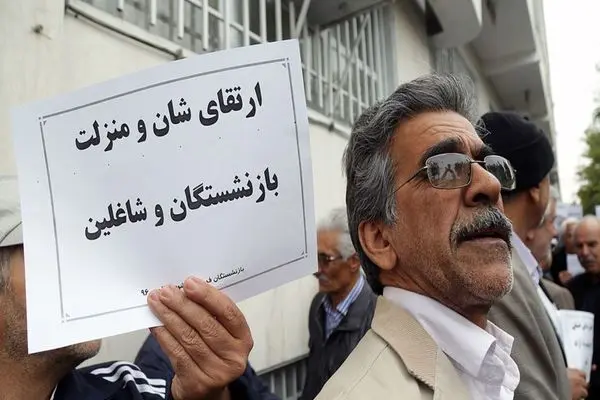 ارتقای شان و منزلت
بازنشستگان و شاغلین
بازنشستگان ۹۶